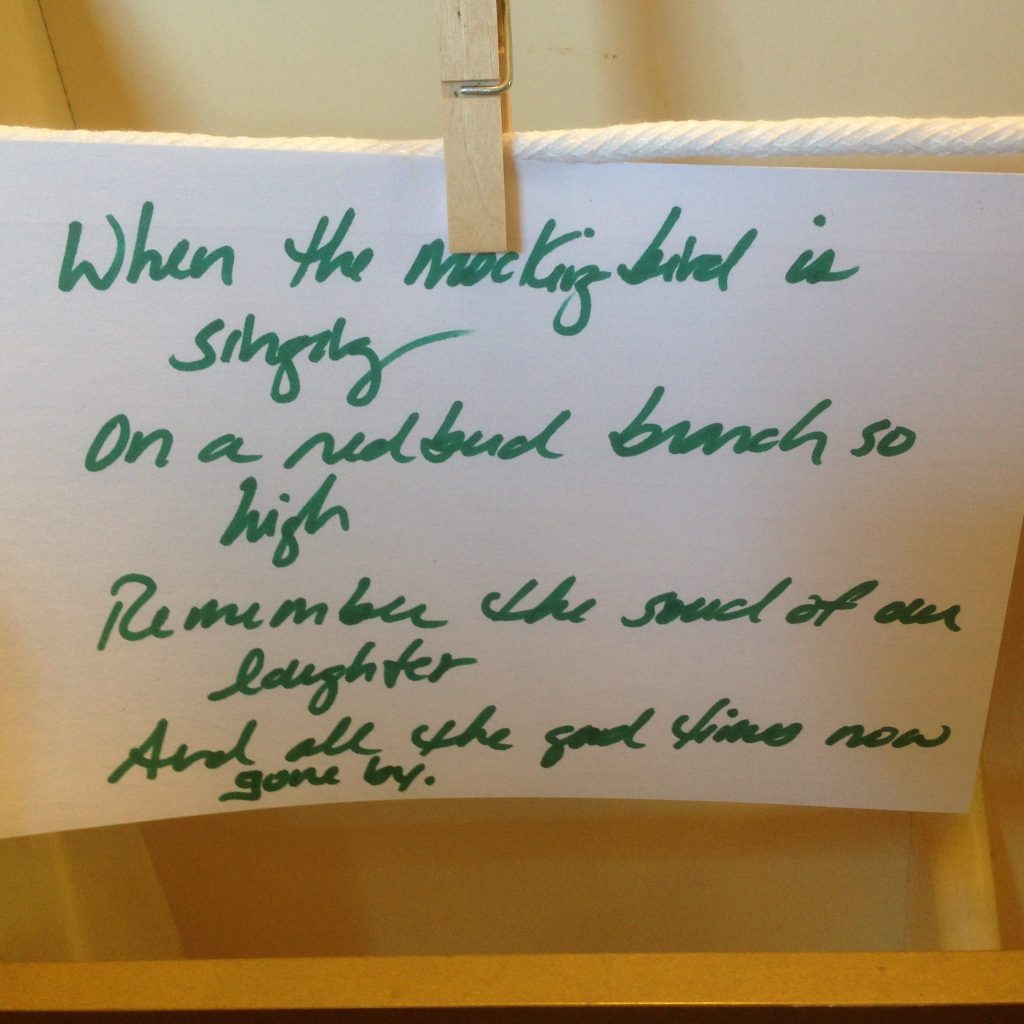 When the mockingbird is
singing
On a redbud branch so
high
Remember the sound of our
laughter
And all the good times now
gone by.